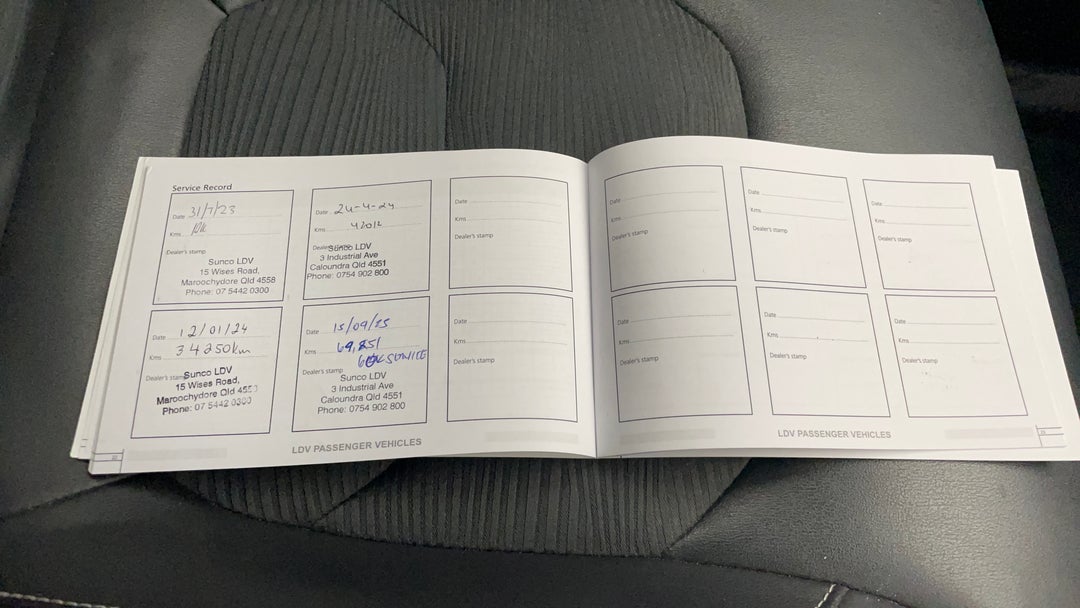 Service Record
Date 31/7/23
Kms
Dealer's stamp
Sunco LDV
15 Wises Road,
Maroochydore Qld 4558
Phone: 07 5442 0300
Date 12/01/24
Kms 34250km
Dealer's stamp
Sunco LDV
15 Wises Road,
Maroochydore Qld
Phone: 07 5442 0300
Date 24-4-24
Kms
Dealer's stamp
Sunco LDV
3 Industrial Ave
Caloundra Qld 4551
Phone: 0754 902 800
Date 15/09/25
Kms 69,851
60K SERVICE
Dealer's stamp
Sunco LDV
3 Industrial Ave
Caloundra Qld 4551
Phone: 0754 902 800
Date
Kms
Dealer's stamp
Date
Kms
Dealer's stamp
LDV PASSENGER VEHICLES
Date
Kms
Dealer's stamp
Date
Kms
Dealer's stamp
Date
Kms
Dealer's stamp
Date
Kms
Dealer's stamp
Date
Kms
Dealer's stamp
Date
Kms
Dealer's stamp
LDV PASSENGER VEHICLES